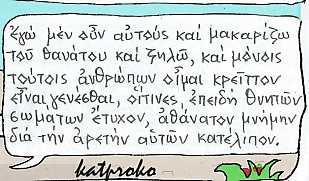 ἐγὼ μὲν οὖν αὐτοὺς καὶ μακαρίζω
τοῦ θανάτου καὶ ζηλῶ, καὶ μόνοις
τούτοις ἀνθρώπων οἶμαι κρεῖττον
εἶναι γενέσθαι, οἵτινες, ἐπειδὴ θνητῶν
σωμάτων ἔτυχον, ἀθάνατον μνήμην
διὰ τὴν ἀρετὴν αὑτῶν κατέλιπον.
katproko